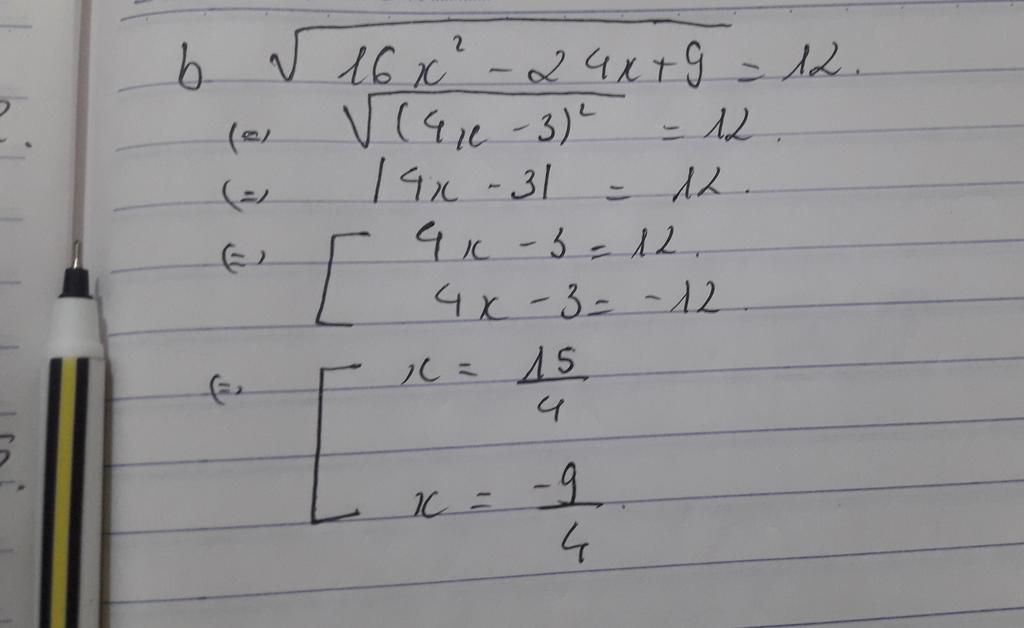 b √(16x² - 24x + 9) = 12.
(=) √((4x - 3)²) = 12.
(=) |4x - 3| = 12.
(=) [ 4x - 3 = 12.
4x - 3 = -12.
(=) [ x = 15/4
x = -9/4.